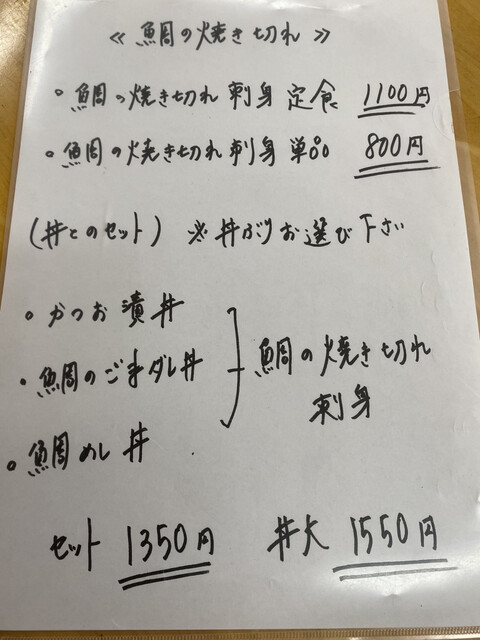 ≪ 鯛の焼き切れ ≫
・鯛の焼き切れ刺身 定食 1100円
・鯛の焼き切れ刺身 単品 800円
(丼とのセット) ※丼ぶりお選び下さい
・かつお漬丼
・鯛のごまダレ丼
鯛の焼き切れ
刺身
・鯛めし丼
セット 1350円 丼大 1550円